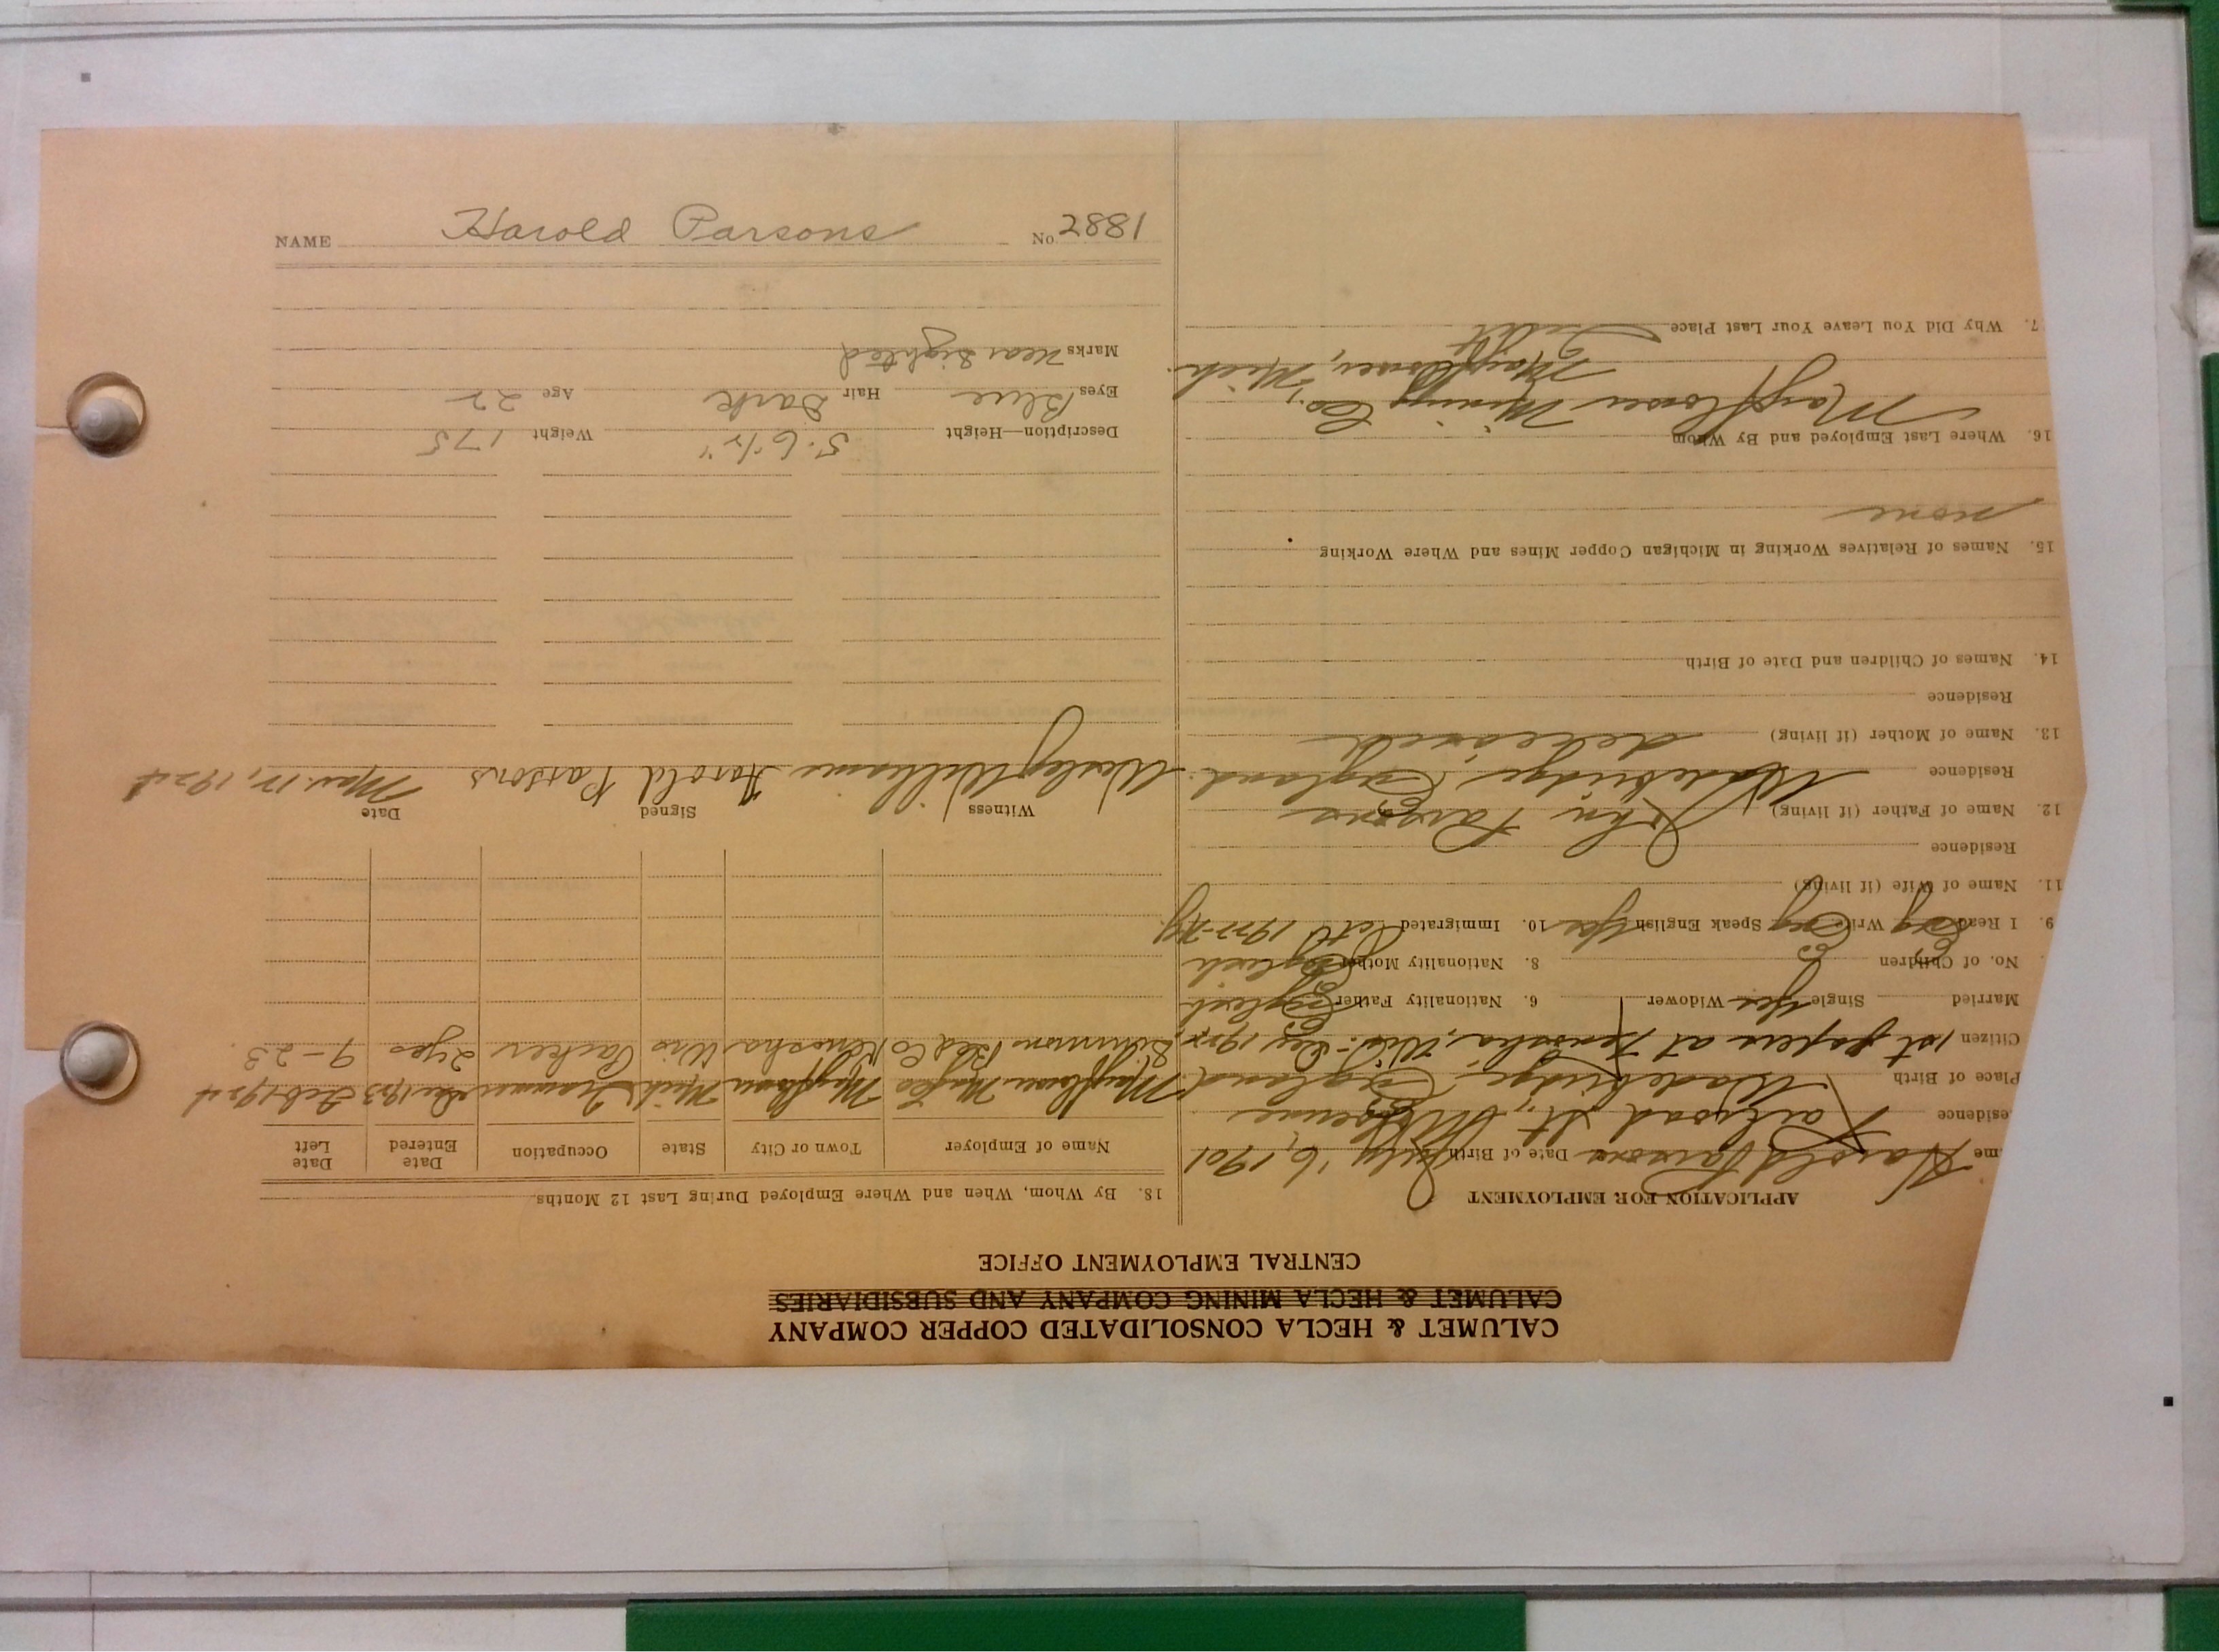 CALUMET & HECLA CONSOLIDATED COPPER COMPANY
CALUMET & HECLA MINING COMPANY AND SUBSIDIARIES
CENTRAL EMPLOYMENT OFFICE
APPLICATION FOR EMPLOYMENT
me Harold Parsons Date of Birth July 6, 1901
esidence Railroad St.,
Place of Birth Wadebridge, England.
Citizen 1st papers at Kenosha, Wis. - Dec 1922
Married Single Yes Widower 6. Nationality Father English
No. of Children 8. Nationality Mother English
9. I Read Eng Write Eng Speak English Yes 10. Immigrated Oct 1922 - NY.
11. Name of Wife (if living)
Residence
12. Name of Father (if living) John Parsons
Residence Wadebridge, England.
13. Name of Mother (if living) deceased
Residence
14. Names of Children and Date of Birth
15. Names of Relatives Working in Michigan Copper Mines and Where Working
none
16. Where Last Employed and By Whom
Mayflower Mining Co.,
Mayflower, Mich.
7. Why Did You Leave Your Last Place Quit
18. By Whom, When and Where Employed During Last 12 Months
Name of Employer Town or City State Occupation Date Entered Date Left
Mayflower Mayflower Mich Trammer 1923 Feb 1924
Simmons Bed Co Kenosha Wis Packer 2 yrs 9-23
Witness Signed Date
Wesley Williams Harold Parsons Mar. 17, 1924
Description—Height 5. 6 1/2" Weight 175
Eyes Blue Hair Dark Age 22
Marks Near Sighted
NAME Harold Parsons No. 1882